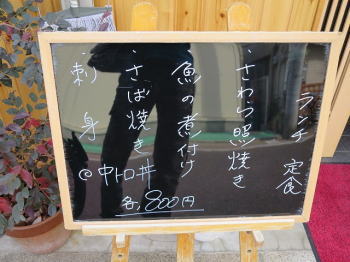 ランチ 定食
・さわら照焼き
魚の煮付け
・さば焼き
刺身
◎中トロ丼
各、800円